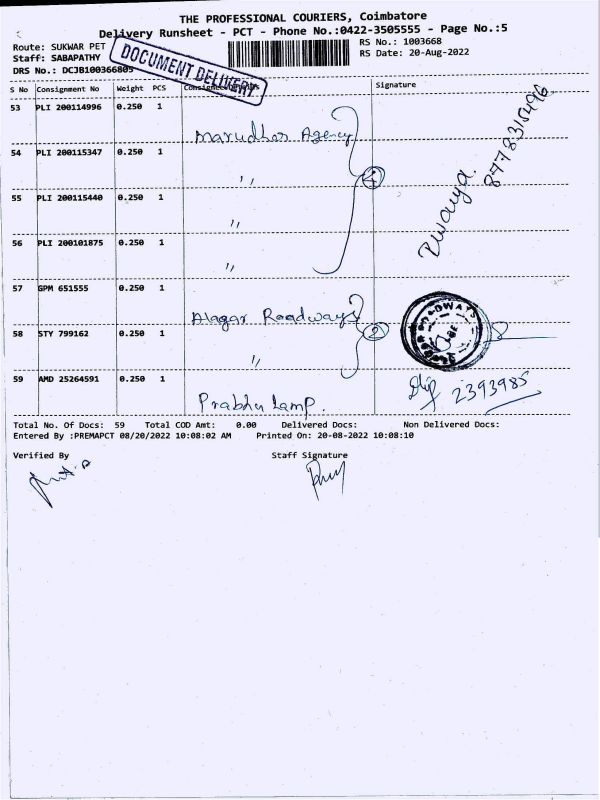 THE PROFESSIONAL COURIERS, Coimbatore
Delivery Runsheet - PCT - Phone No.:0422-3505555 - Page No.:5
Route: SUKWAR PET
RS No.: 1003668
Staff: SABAPATHY
RS Date: 20-Aug-2022
DRS No.: DCJB100366805
DOCUMENT DELIVERY
S No Consignment No Weight PCS Signature
53 PLI 200114996 0.250 1
Marudhar Agency
54 PLI 200115347 0.250 1
,,
4
55 PLI 200115440 0.250 1
,,
56 PLI 200101875 0.250 1
,,
8778315496
57 GPM 651555 0.250 1
Alagar Roadways
58 STY 799162 0.250 1
,,
2
59 AMD 25264591 0.250 1
Prabhu Lamp.
2393985
Total No. Of Docs: 59 Total COD Amt: 0.00 Delivered Docs: Non Delivered Docs:
Entered By :PREMAPCT 08/20/2022 10:08:02 AM Printed On: 20-08-2022 10:08:10
Verified By Staff Signature